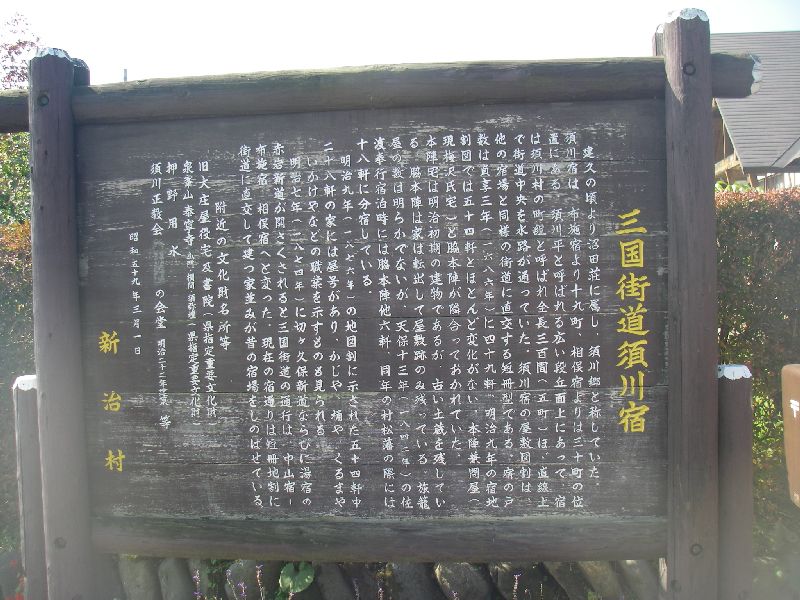 三国街道須川宿
建久の頃より沼田荘に属し、須川郷と称していた。
須川宿は、布施宿より十九町、相俣宿よりは三十町の位
置にある。須川平と呼ばれる広い段丘面上にあって、宿
は須川村の町組と呼ばれ全長三百間（五町）ほゞ直線上
で街道中央を水路が通っていた。須川宿の屋敷図割は、
他の宿場と同様の街道に直交する短冊型である。宿の戸
数は貞享三年（一六八六年）に四十九軒、明治九年の宿地
割図では五十四軒とほとんど変化がない。本陣兼問屋（
現梅沢氏宅）と脇本陣が隣合っておかれていた。
本陣宅は明治初期の建物であるが、古い土蔵を残してい
る。脇本陣は家は転出して屋敷跡のみ残っている。旅籠
屋の数は明らかでないが、天保十三年（一八四二年）の佐
渡奉行宿泊時には脇本陣他六軒、同年の村松藩の際には
十八軒に分宿している。
明治九年（一八七六年）の地図割に示された五十四軒中
二十八軒の家には屋号があり、かじや、桶や、くるまや
いかけやなどの職業を示すものも見られる。
明治七年（一八七四年）に切ヶ久保新道ならびに湯宿の
赤岩新道が開さくされると三国街道の通行は、中山宿ー
布施宿ー相俣宿へと変った。現在の宿通りは短冊地割に
街道に直交して建つ家並みが昔の宿場をしのばせている。
附近の文化財名所等
旧大庄屋役宅及書院（県指定重要文化財）
泉峯山泰寧寺 山門 欄間 須弥壇（県指定重要文化財）
押野用水
須川正教会 の会堂 明治二十二年 等
昭和五十九年三月一日
新治村